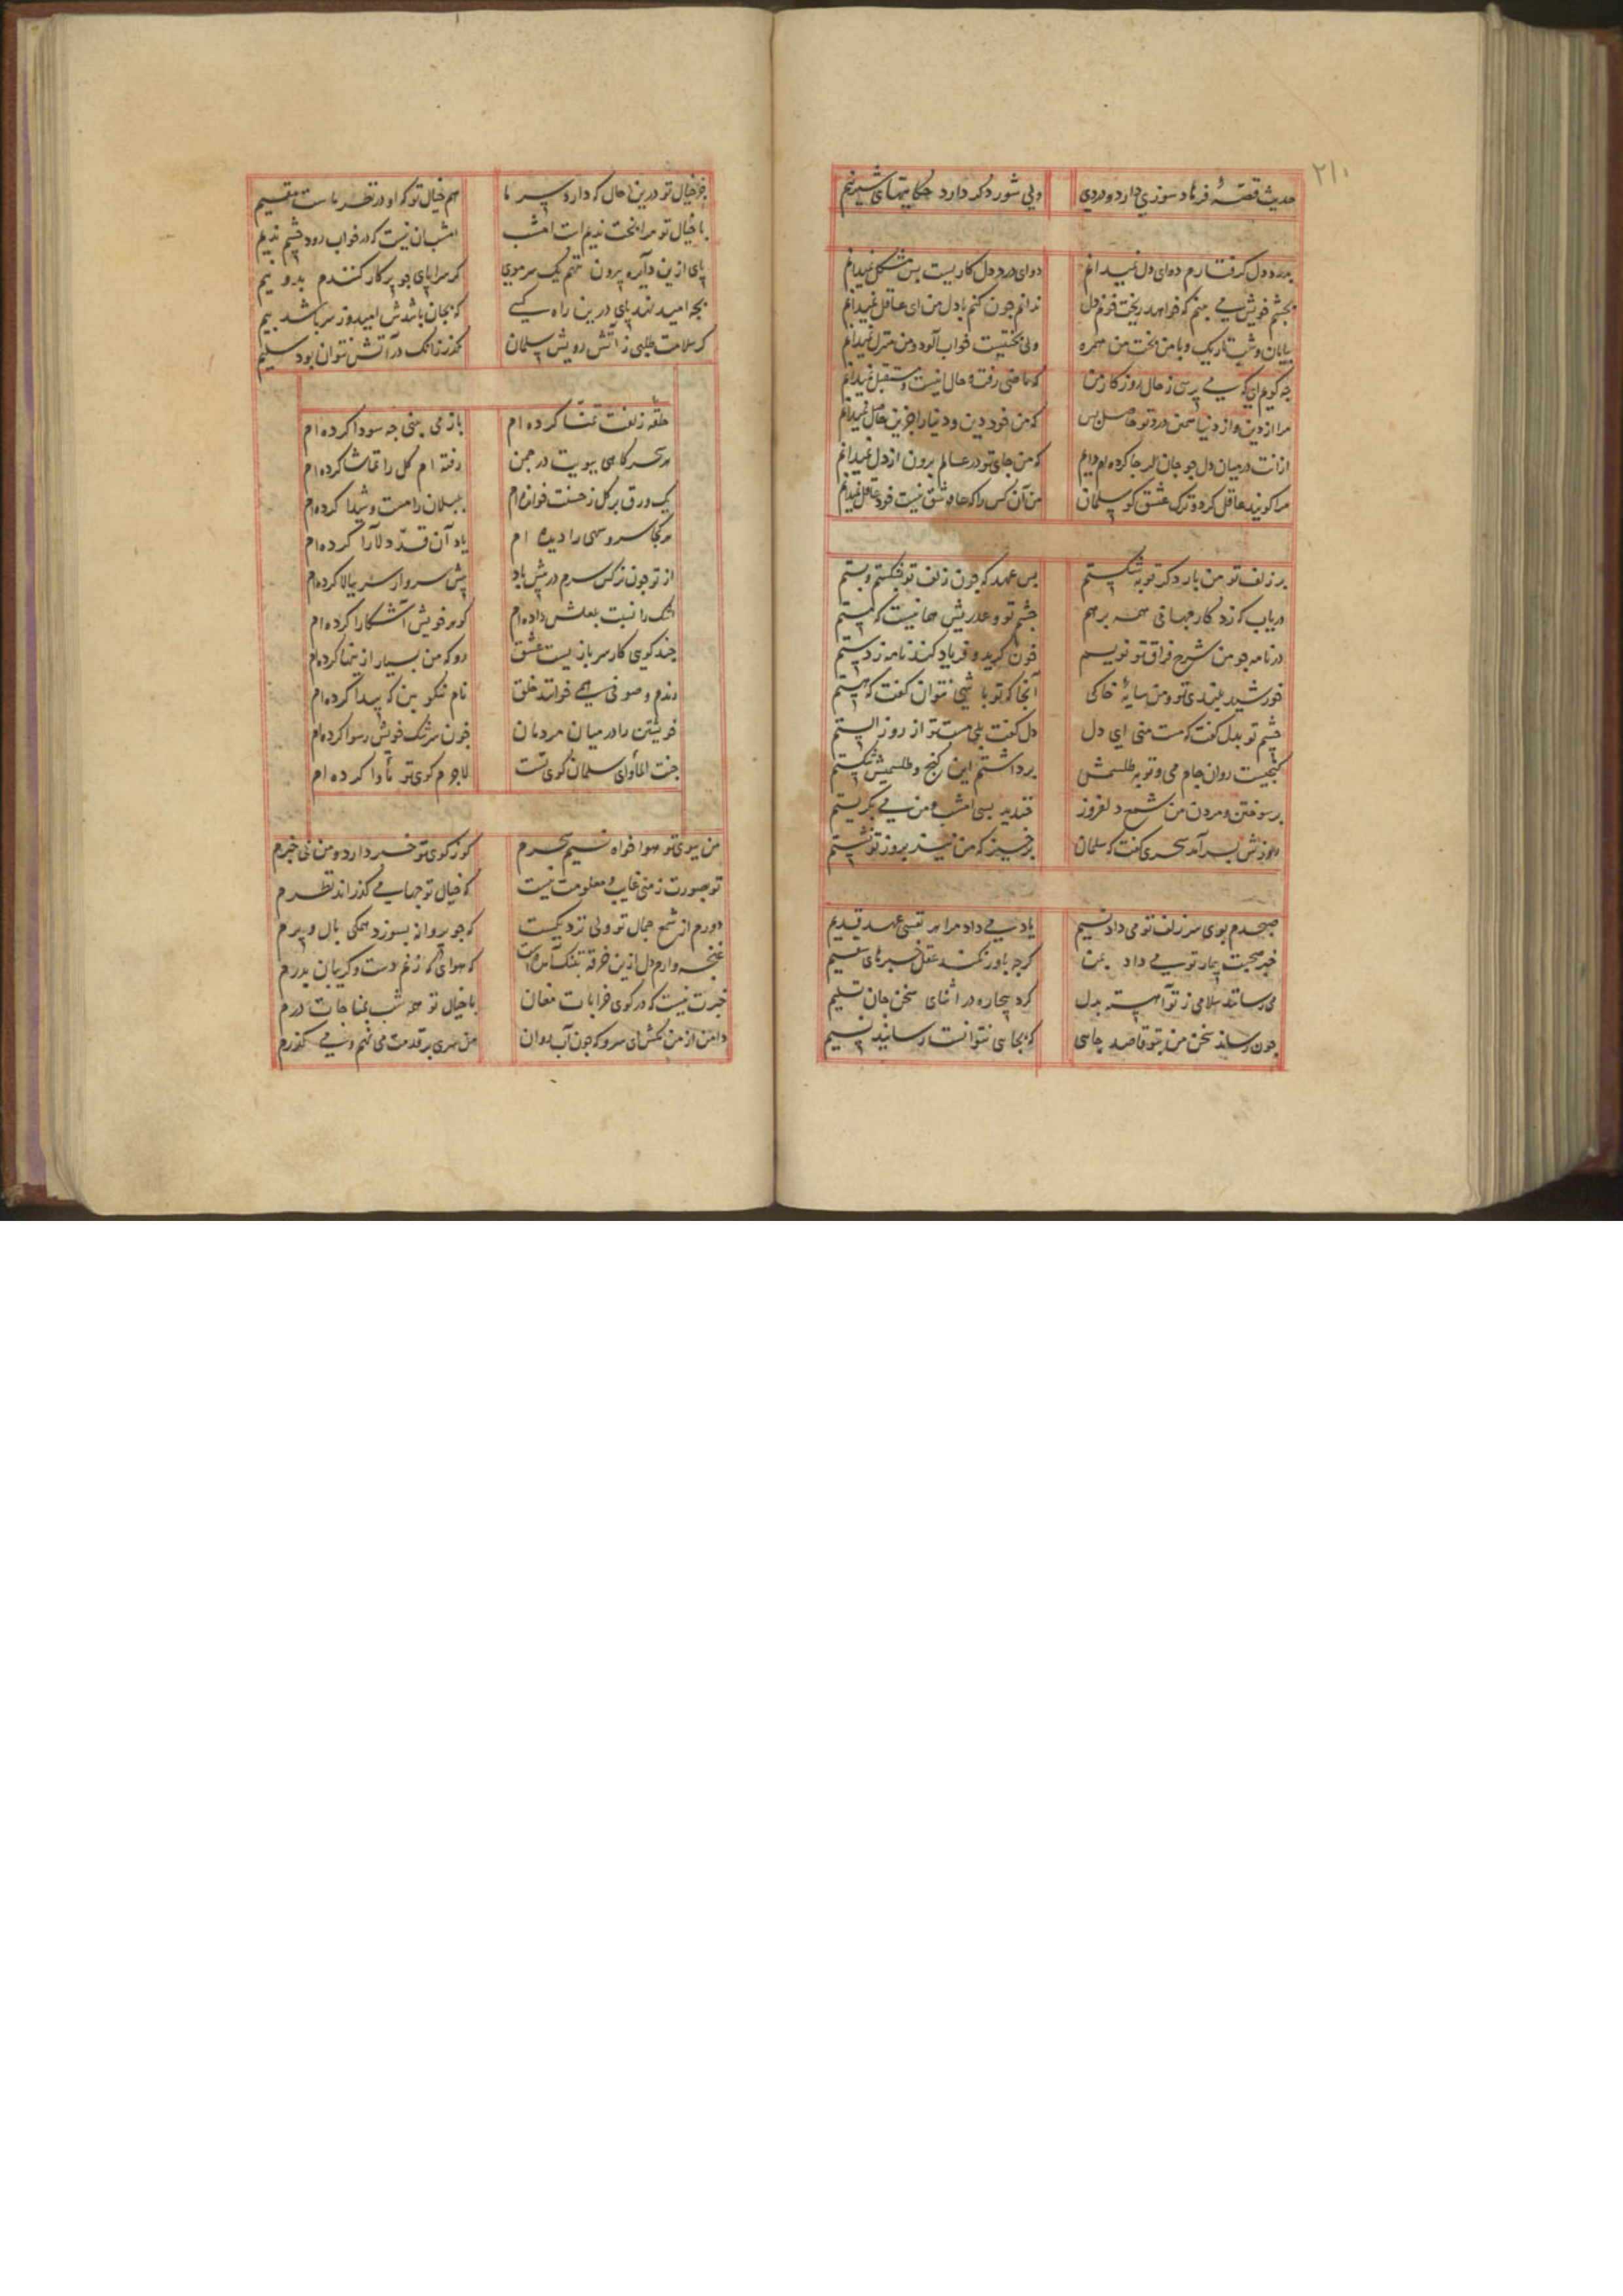 ۲۱۰
حدیث قصهٔ فرهاد سوزی دارد و دردی ولی شور دکر دارد حکایتهای شیرینم
بدرد دل کرفتارم دوای دل نمیدانم دوای درد دل کاریست بس مشکل نمیدانم
بچشم خویش می بینم که خواهد ریخت خونم دل ندانم چون کنم با دل من ای عاقل نمیدانم
بیابان و شب تاریک و با من بخت من همره ولی بختیست خواب آلود و من منزل نمیدانم
چه کویم ای که می پرسی ز حال روزکار من که ماضی رفت و حال اینست و مستقبل نمیدانم
مرا از دین و از دنیا همین درد تو حاصل بس که من خود دین و دنیا را جز این حاصل نمیدانم
از انت در میان دل چو جان جا کرده ام دایم که من جای تو در عالم برون از دل نمیدانم
مرا کویند عاقل کرد و ترک عشق کو سلمان من آن کس را که عاشق نیست خود عاقل نمیدانم
بر زلف تو من بار دکر توبه شکستم بس عهد که چون زلف تو بشکستم و بستم
دریاب که زد کار جهانی همه بر هم چشم تو و عذریش همانیست که مستم
در نامه چو من شرح فراق تو نویسم خون کرید و فریاد کند نامه ز دستم
خورشید بلندی تو و من سایهٔ خاکی آنجا که تو باشی نتوان کفت که هستم
چشم تو بدل کفت که مست منی ای دل دل کفت بلی مست تو از روز الستم
کنجیست روان جام می و توبه طلسمش برداشتم این کنج و طلسمش بشکستم
بر سوختن و مردن من شمع دلفروز خندید بسی امشب و من می بکریستم
بر آمد سحری کفت که سلمان برخیز که من نیز بروز تو نشستم
صبحدم بوی سر زلف تو می داد نسیم یاد می داد مرا هر نفسی عهد قدیم
خبر صحبت بیمار تو می داد بمن کرچه باور نکند عقل خبرهای سقیم
می رسانند سلامی ز تو آهسته بدل کرد بیچاره در اثنای سخن جان تسلیم
چون رساند سخن من بتو قاصد جایی که بجایی نتوانست رسانید نسیم
جز خیال تو درین حال که دارد سر ما هم خیال تو که او در نظر ماست مقیم
با خیال تو مرا بخت ندیم است امشب امشب آن نیست که در خواب رود چشم ندیم
پای ازین دایره بیرون ننهم یک سر موی کر سراپای چو پرکار کنندم بدو نیم
بچه امید نهد پای درین راه کسی که بجان باشدش امید و ز سر باشد بیم
کر سلامت طلبی ز آتش رویش سلمان مکذر زانک در آتش نتوان بود سلیم
حلقه زلفت تمنا کرده ام باز می بینی چه سودا کرده ام
هر سحرکاهی ببویت در چمن رفته ام کل را تماشا کرده ام
یک ورق بر کل ز حسنت خوانده ام بلبلان را مست و شیدا کرده ام
هر کجا سرو سهی را دیده ام یاد آن قد دلارا کرده ام
از تو چون نرکس سرم در پیش باد پیش سرو ار سر ببالا کرده ام
اشک را نسبت بلعلش داده ام کوهر خویش آشکارا کرده ام
چند کویی کار سربازیست عشق رو که من بسیار ازینها کرده ام
رندم و صوفی همی خوانند خلق نام نیکو بین که پیدا کرده ام
خویشتن را در میان مردمان چون سرشک خویش رسوا کرده ام
جنت المأوای سلمان کوی تست لاجرم کوی تو مأوا کرده ام
من ببوی تو هوا خواه نسیم سحرم کو ز کوی تو خبر دارد و من بی خبرم
تو بصورت ز منی غایب و معلومت نیست که خیال تو چها می کذراند نظرم
دورم از شمع جمال تو ولی نزدیکست که چو پروانه بسوزد همکی بال و پرم
غنچه وارم دل ازین خرقه بتنک آمده است که هوای که زنم دست و کریبان بدرم
خبرت نیست که در کوی خرابات مغان با خیال تو همه شب بمناجات درم
دامن از من مکش ای سرو که چون آب روان من سری بر قدمت می نهم و می کذرم